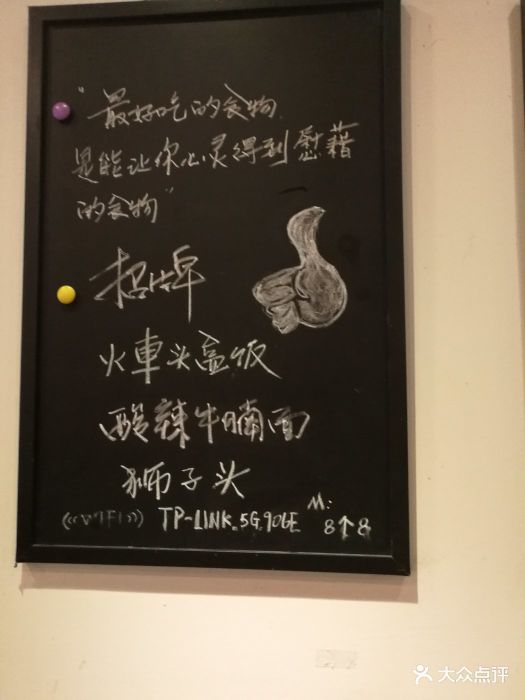 "最好吃的食物
是能让你心灵得到慰藉
的食物"
招牌
火車头盖饭
酸辣牛腩面
狮子头
((WIFI)) TP-LINK_5G_906E M: 8↑8
大众点评